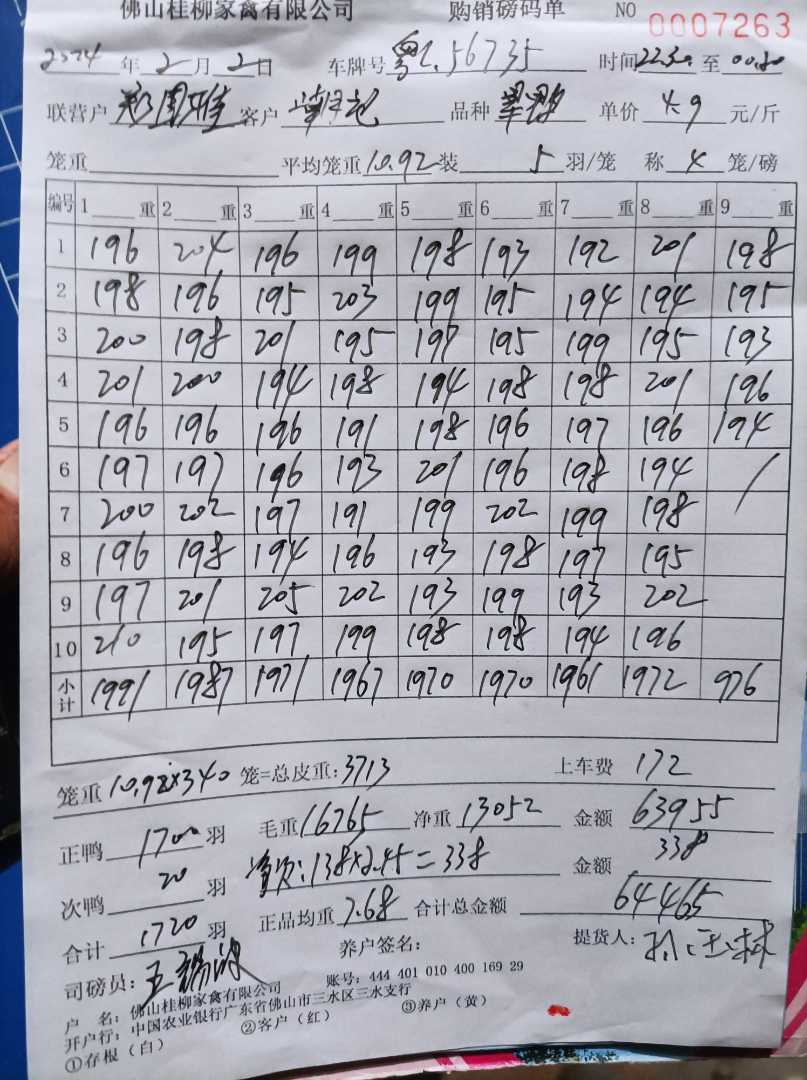 佛山桂柳家禽有限公司 购销磅码单 NO 0007263
2024 年 2 月 2 日 车牌号 粤L.56735 时间 22.30 至 00.80
联营户 郑国雅 客户 品种 单价 4.9 元/斤
笼重 平均笼重 10.92 装 5 羽/笼 称 4 笼/磅
编号 1 重 2 重 3 重 4 重 5 重 6 重 7 重 8 重 9 重
1 196 204 196 199 198 193 192 201 198
2 198 196 195 203 199 195 194 194 195
3 200 198 201 195 197 195 199 195 193
4 201 200 194 198 194 198 198 201 196
5 196 196 196 191 198 196 197 196 194
6 197 197 196 193 201 196 198 194 /
7 200 202 197 191 199 202 199 198
8 196 198 194 196 193 198 197 195
9 197 201 205 202 193 199 193 202
10 210 195 197 199 198 198 194 196
小计 1991 1987 1971 1967 1970 1970 1961 1972 976
笼重 10.92×340 笼=总皮重: 3713 上车费 172
正鸭 1700 羽 毛重 16765 净重 13052 金额 63955
次鸭 20 羽 138×2.45=338 金额 338
合计 1720 羽 正品均重 7.68 合计总金额 64465
司磅员: 王 养户签名: 提货人:
户 名: 佛山桂柳家禽有限公司 账号: 444 401 010 400 169 29
开户行: 中国农业银行广东省佛山市三水区三水支行
①存根（白） ②客户（红） ③养户（黄）